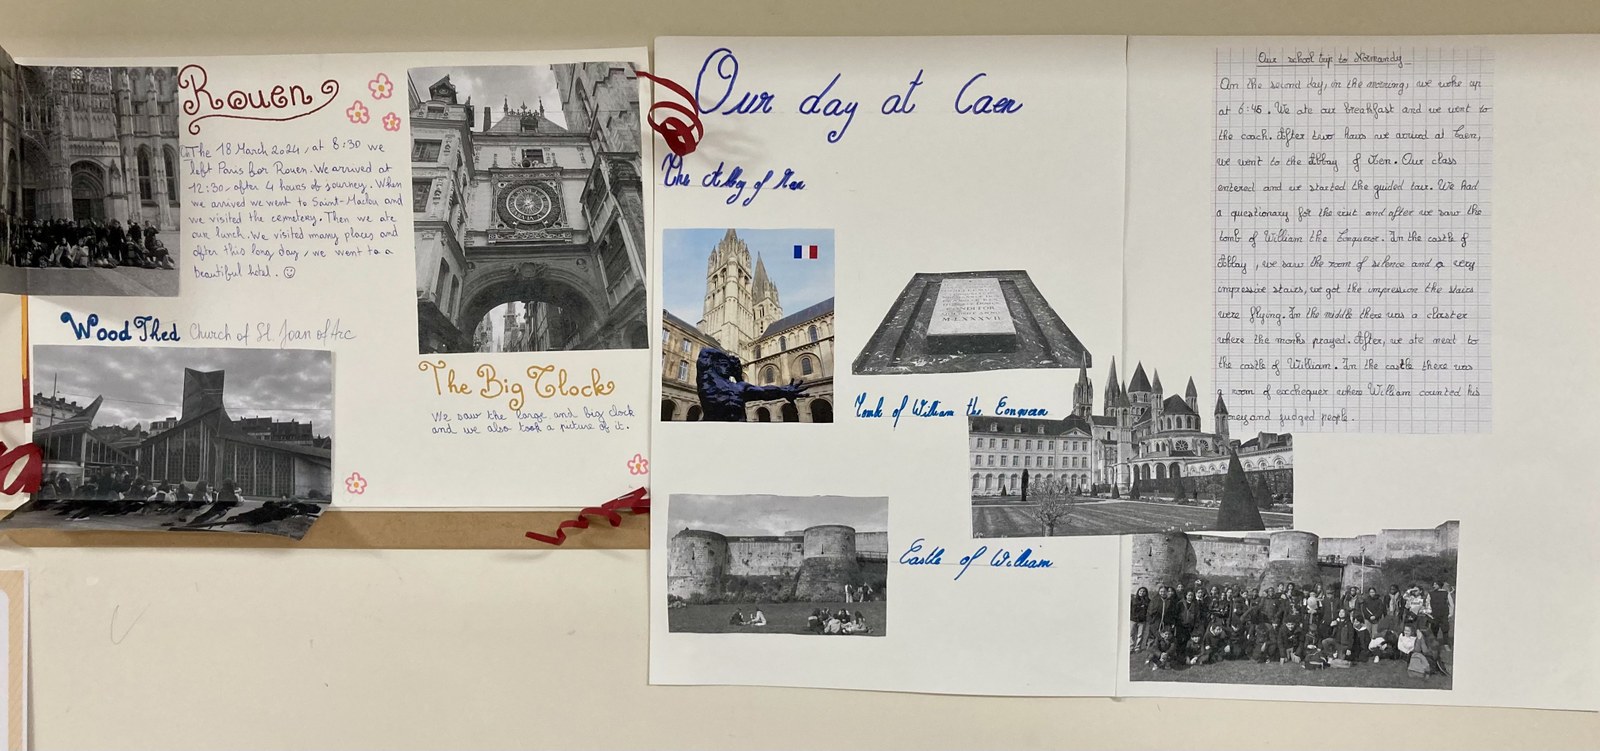 Rouen
The 18 March 2024, at 8:30 we
left Paris for Rouen. We arrived at
12:30, after 4 hours of journey. When
we arrived we went to Saint-Maclou and
we visited the cemetery. Then we ate
our lunch. We visited many places and
after this long day, we went to a
beautiful hotel. ☺
Wood Thed Church of St. Joan of Arc
The Big Clock
We saw the large and big clock
and we also took a picture of it.
Our day at Caen
The Abbey of
Tomb of William the
Castle of William
Our school trip to Normandy
On the second day, in the morning, we woke up
at 6:45. We ate our breakfast and we went to
the coach. After two hours we arrived at Caen,
we went to the Abbay of Men. Our class
entered and we started the guided tour. We had
a questionary for the visit and after we saw the
tomb of William the Conqueror. In the castle of
Abbay, we saw the room of silence and a very
impressive stairs, we got the impression the stairs
were flying. In the middle there was a cloister
where the monks prayed. After, we ate next to
the castle of William. In the castle there was
a room of exchequer where William counted his
money and judged people.